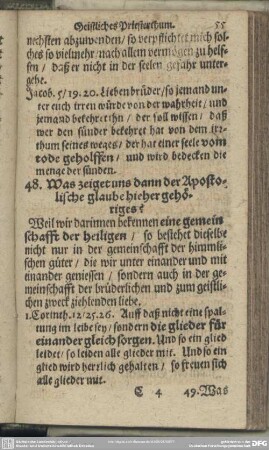 Geistliches Priesterthum. 55
nechsten abzuwenden / so verpflichtet mich sol-
ches so vielmehr / nach allem vermögen zu helf-
fen / daß er nicht in der seelen gefahr unter-
gehe.
Jacob. 5 / 19. 20. Lieben brüder / so jemand un-
ter euch irren würde von der warheit / und
jemand bekehret ihn / der soll wissen / daß
wer den sünder bekehret hat von dem irr-
thum seines weges / der hat einer seele vom
tode geholffen / und wird bedecken die
menge der sünden.
48. Was zeiget uns dann der Aposto-
lische glaube hieher gehö-
riges?
Weil wir darinnen bekennen eine gemein
schafft der heiligen / so bestehet dieselbe
nicht nur in der gemeinschafft der himmli-
schen güter / die wir unter einander und mit
einander geniessen / sondern auch in der ge-
meinschafft der brüderlichen und zum geist-
lichen zweck ziehlenden liebe.
1. Corinth. 12 / 25. 26. Auff daß nicht eine spal-
tung im leibe sey / sondern die glieder für
einander gleich sorgen. Und so ein glied
leidet / so leiden alle glieder mit. Und so ein
glied wird herrlich gehalten / so freuen sich
alle glieder mit.
C 4 49. Was